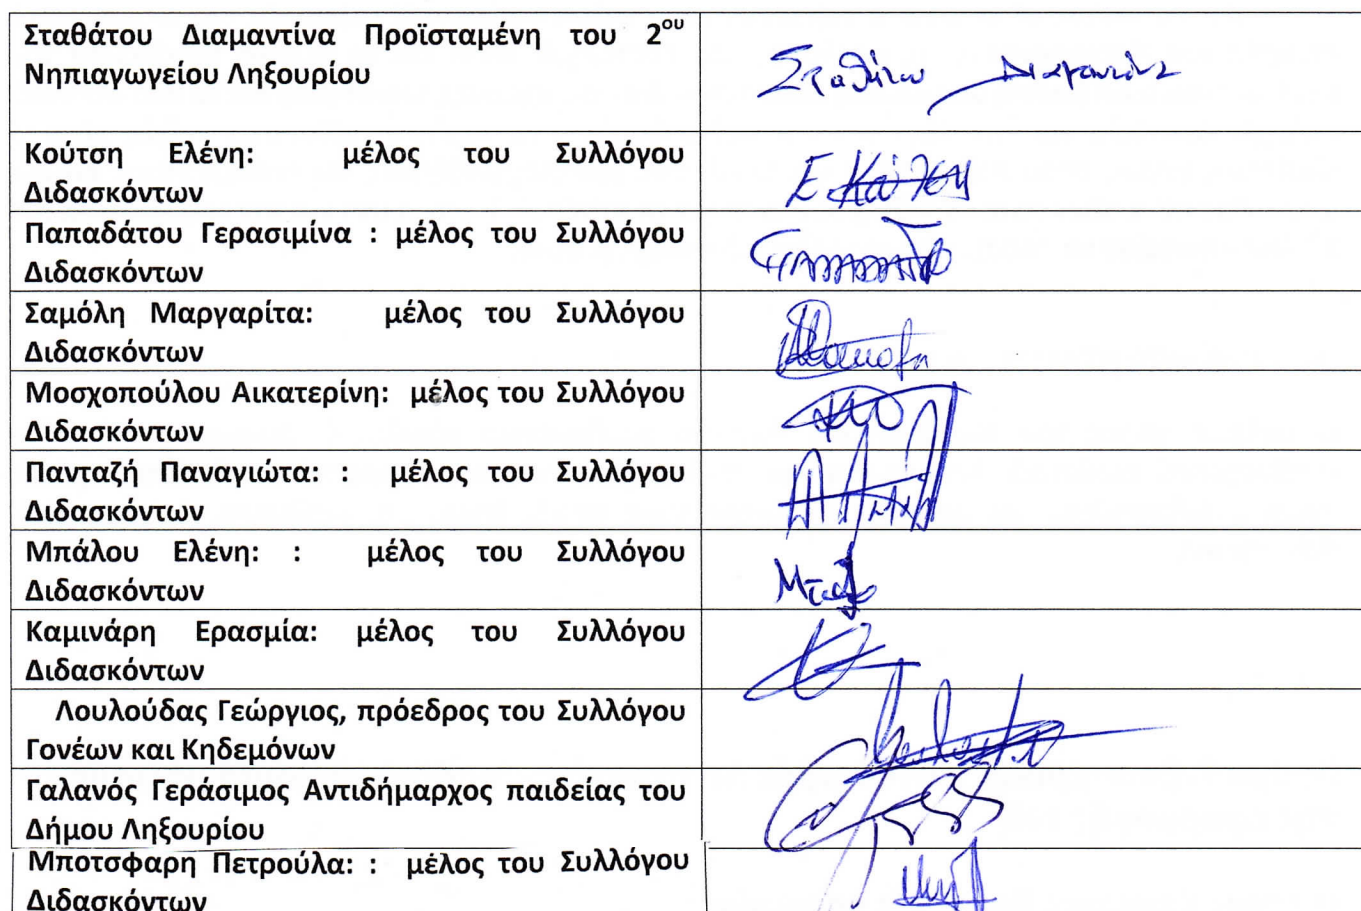 Σταθάτου Διαμαντίνα Προϊσταμένη του 2ου
Νηπιαγωγείου Ληξουρίου
Σταθάτου Διαμαντίνα
Κούτση Ελένη: μέλος του Συλλόγου
Διδασκόντων
Ε
Παπαδάτου Γερασιμίνα : μέλος του Συλλόγου
Διδασκόντων
Σαμόλη Μαργαρίτα: μέλος του Συλλόγου
Διδασκόντων
Μοσχοπούλου Αικατερίνη: μέλος του Συλλόγου
Διδασκόντων
Πανταζή Παναγιώτα: : μέλος του Συλλόγου
Διδασκόντων
Μπάλου Ελένη: : μέλος του Συλλόγου
Διδασκόντων
Καμινάρη Ερασμία: μέλος του Συλλόγου
Διδασκόντων
Λουλούδας Γεώργιος, πρόεδρος του Συλλόγου
Γονέων και Κηδεμόνων
Γαλανός Γεράσιμος Αντιδήμαρχος παιδείας του
Δήμου Ληξουρίου
Μποτσφαρη Πετρούλα: : μέλος του Συλλόγου
Διδασκόντων